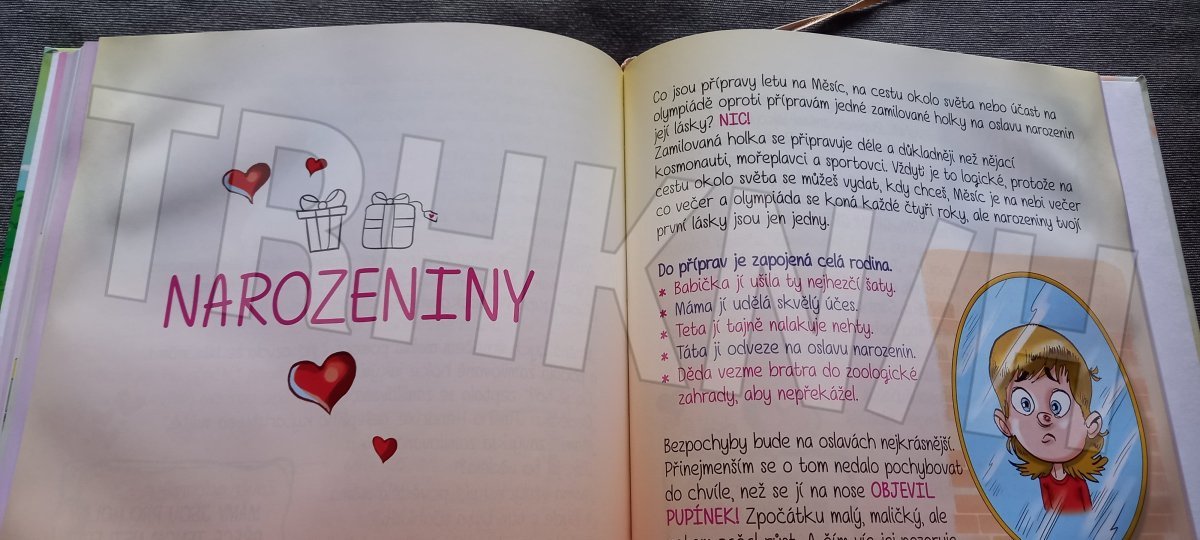 NAROZENINY
Co jsou přípravy letu na Měsíc, na cestu okolo světa nebo účast na
olympiádě oproti přípravám jedné zamilované holky na oslavu narozenin
její lásky? NIC!
Zamilovaná holka se připravuje déle a důkladněji než nějací
kosmonauti, mořeplavci a sportovci. Vždyť je to logické, protože na
cestu okolo světa se můžeš vydat, kdy chceš, Měsíc je na nebi večer
co večer a olympiáda se koná každé čtyři roky, ale narozeniny tvojí
první lásky jsou jen jedny.
Do příprav je zapojená celá rodina.
* Babička jí ušila ty nejhezčí šaty.
* Máma jí udělá skvělý účes.
* Teta jí tajně nalakuje nehty.
* Táta ji odveze na oslavu narozenin.
* Děda vezme bratra do zoologické
zahrady, aby nepřekážel.
Bezpochyby bude na oslavách nejkrásnější.
Přinejmenším se o tom nedalo pochybovat
do chvíle, než se jí na nose OBJEVIL
PUPÍNEK! Zpočátku malý, maličký, ale
TRHKNIH